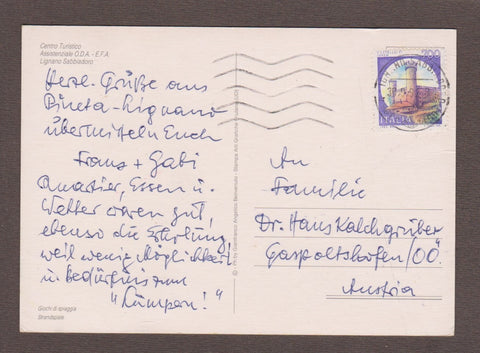 Centro Turistico
Assistenziale O.D.A. - E.F.A.
Lignano Sabbiadoro
Herzl. Grüße aus
Pineta-Lignano
übermitteln Euch
Franz + Gabi
Quartier, Essen u.
Wetter waren gut,
ebenso die Erholung,
weil wenig Möglichkeit
u. Bedürfnis zum
"Lumpern!"
Giochi di spiaggia
Strandspiele
700
ITALIA
An
Familie
Dr. Hans Kalchgruber
Gaspoltshofen/OÖ.
Austria